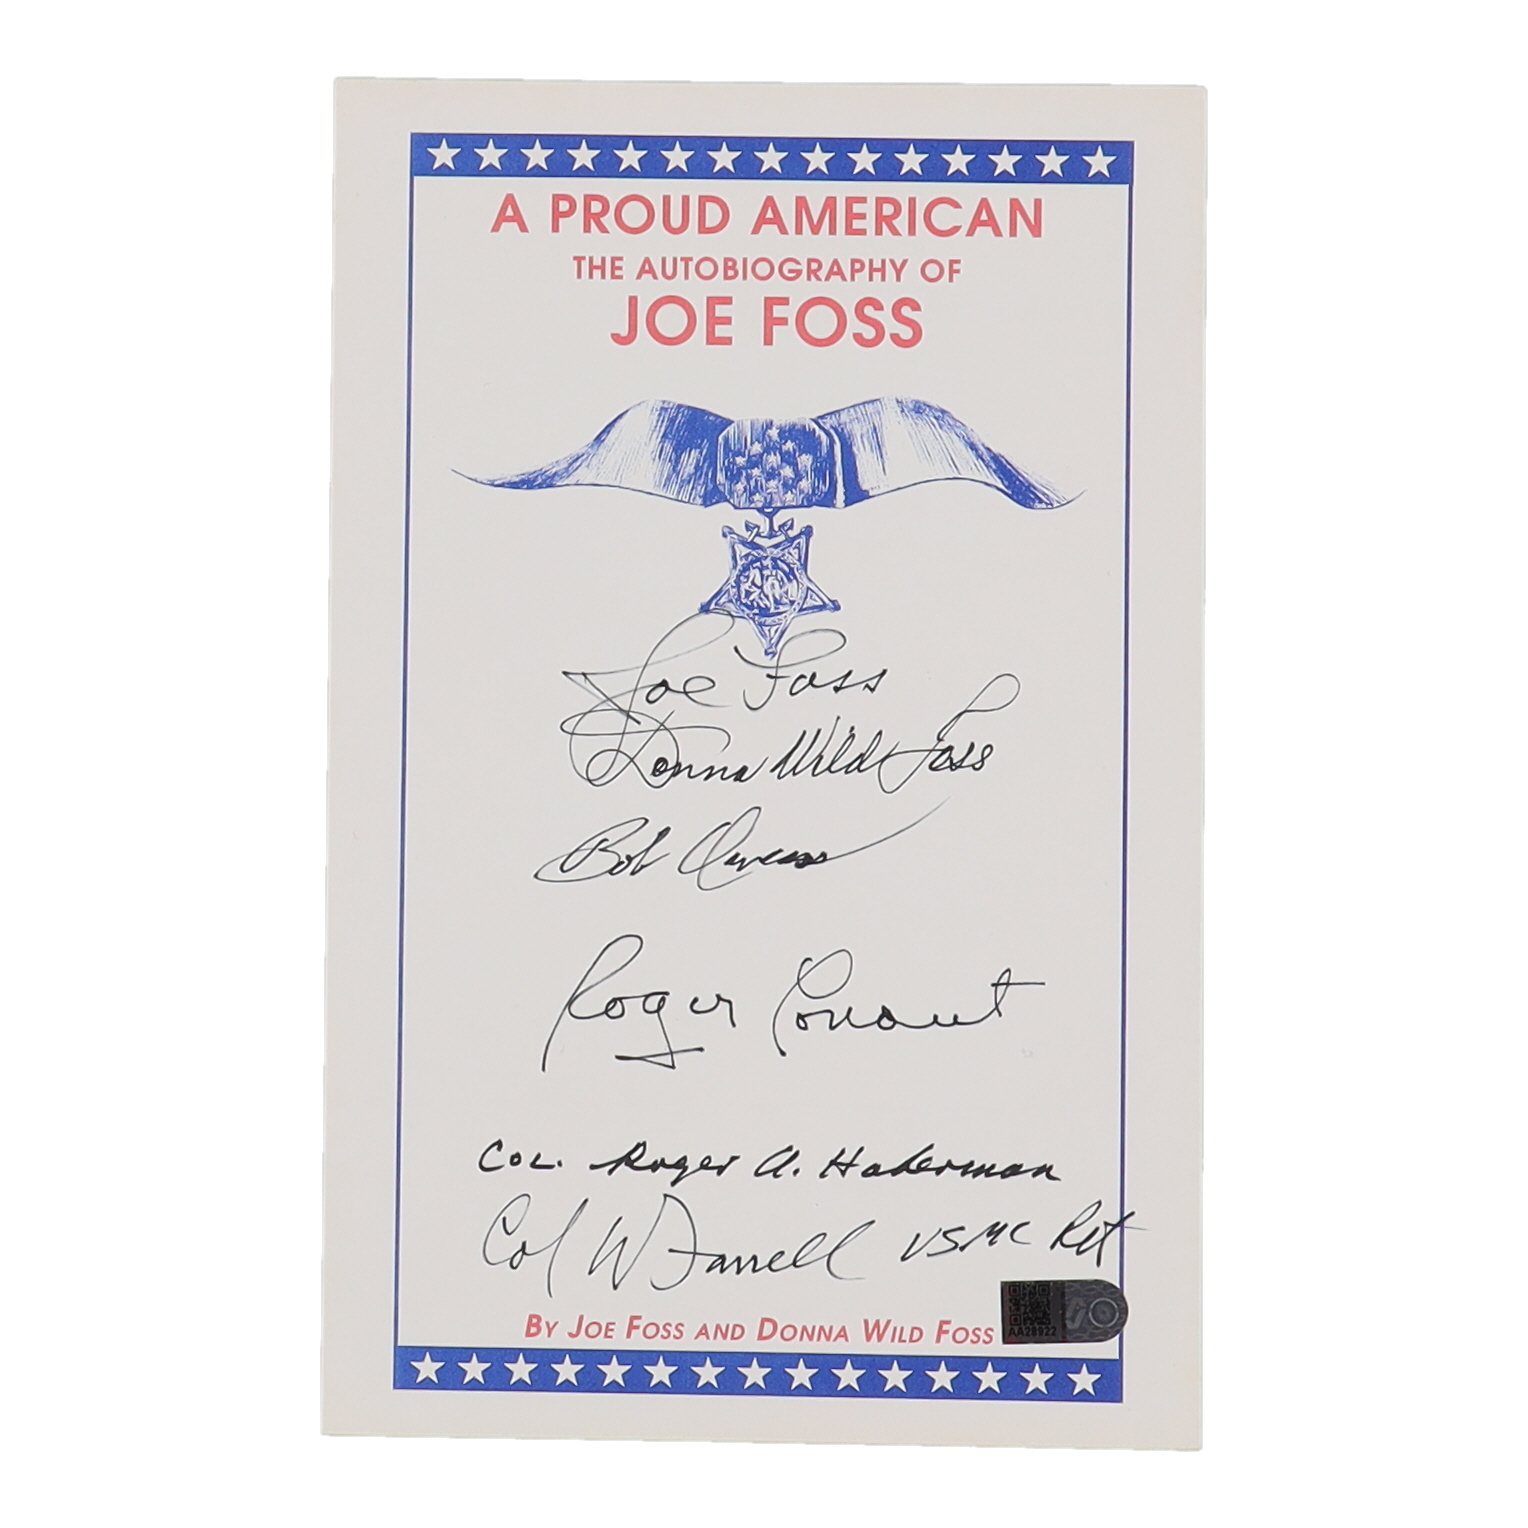 A PROUD AMERICAN
THE AUTOBIOGRAPHY OF
JOE FOSS
Joe Foss
Donna Wild Foss
Bob Owens
Roger Conant
COL. Roger A. Haberman
Col W Farrell USMC Ret
BY JOE FOSS AND DONNA WILD FOSS
AA28922